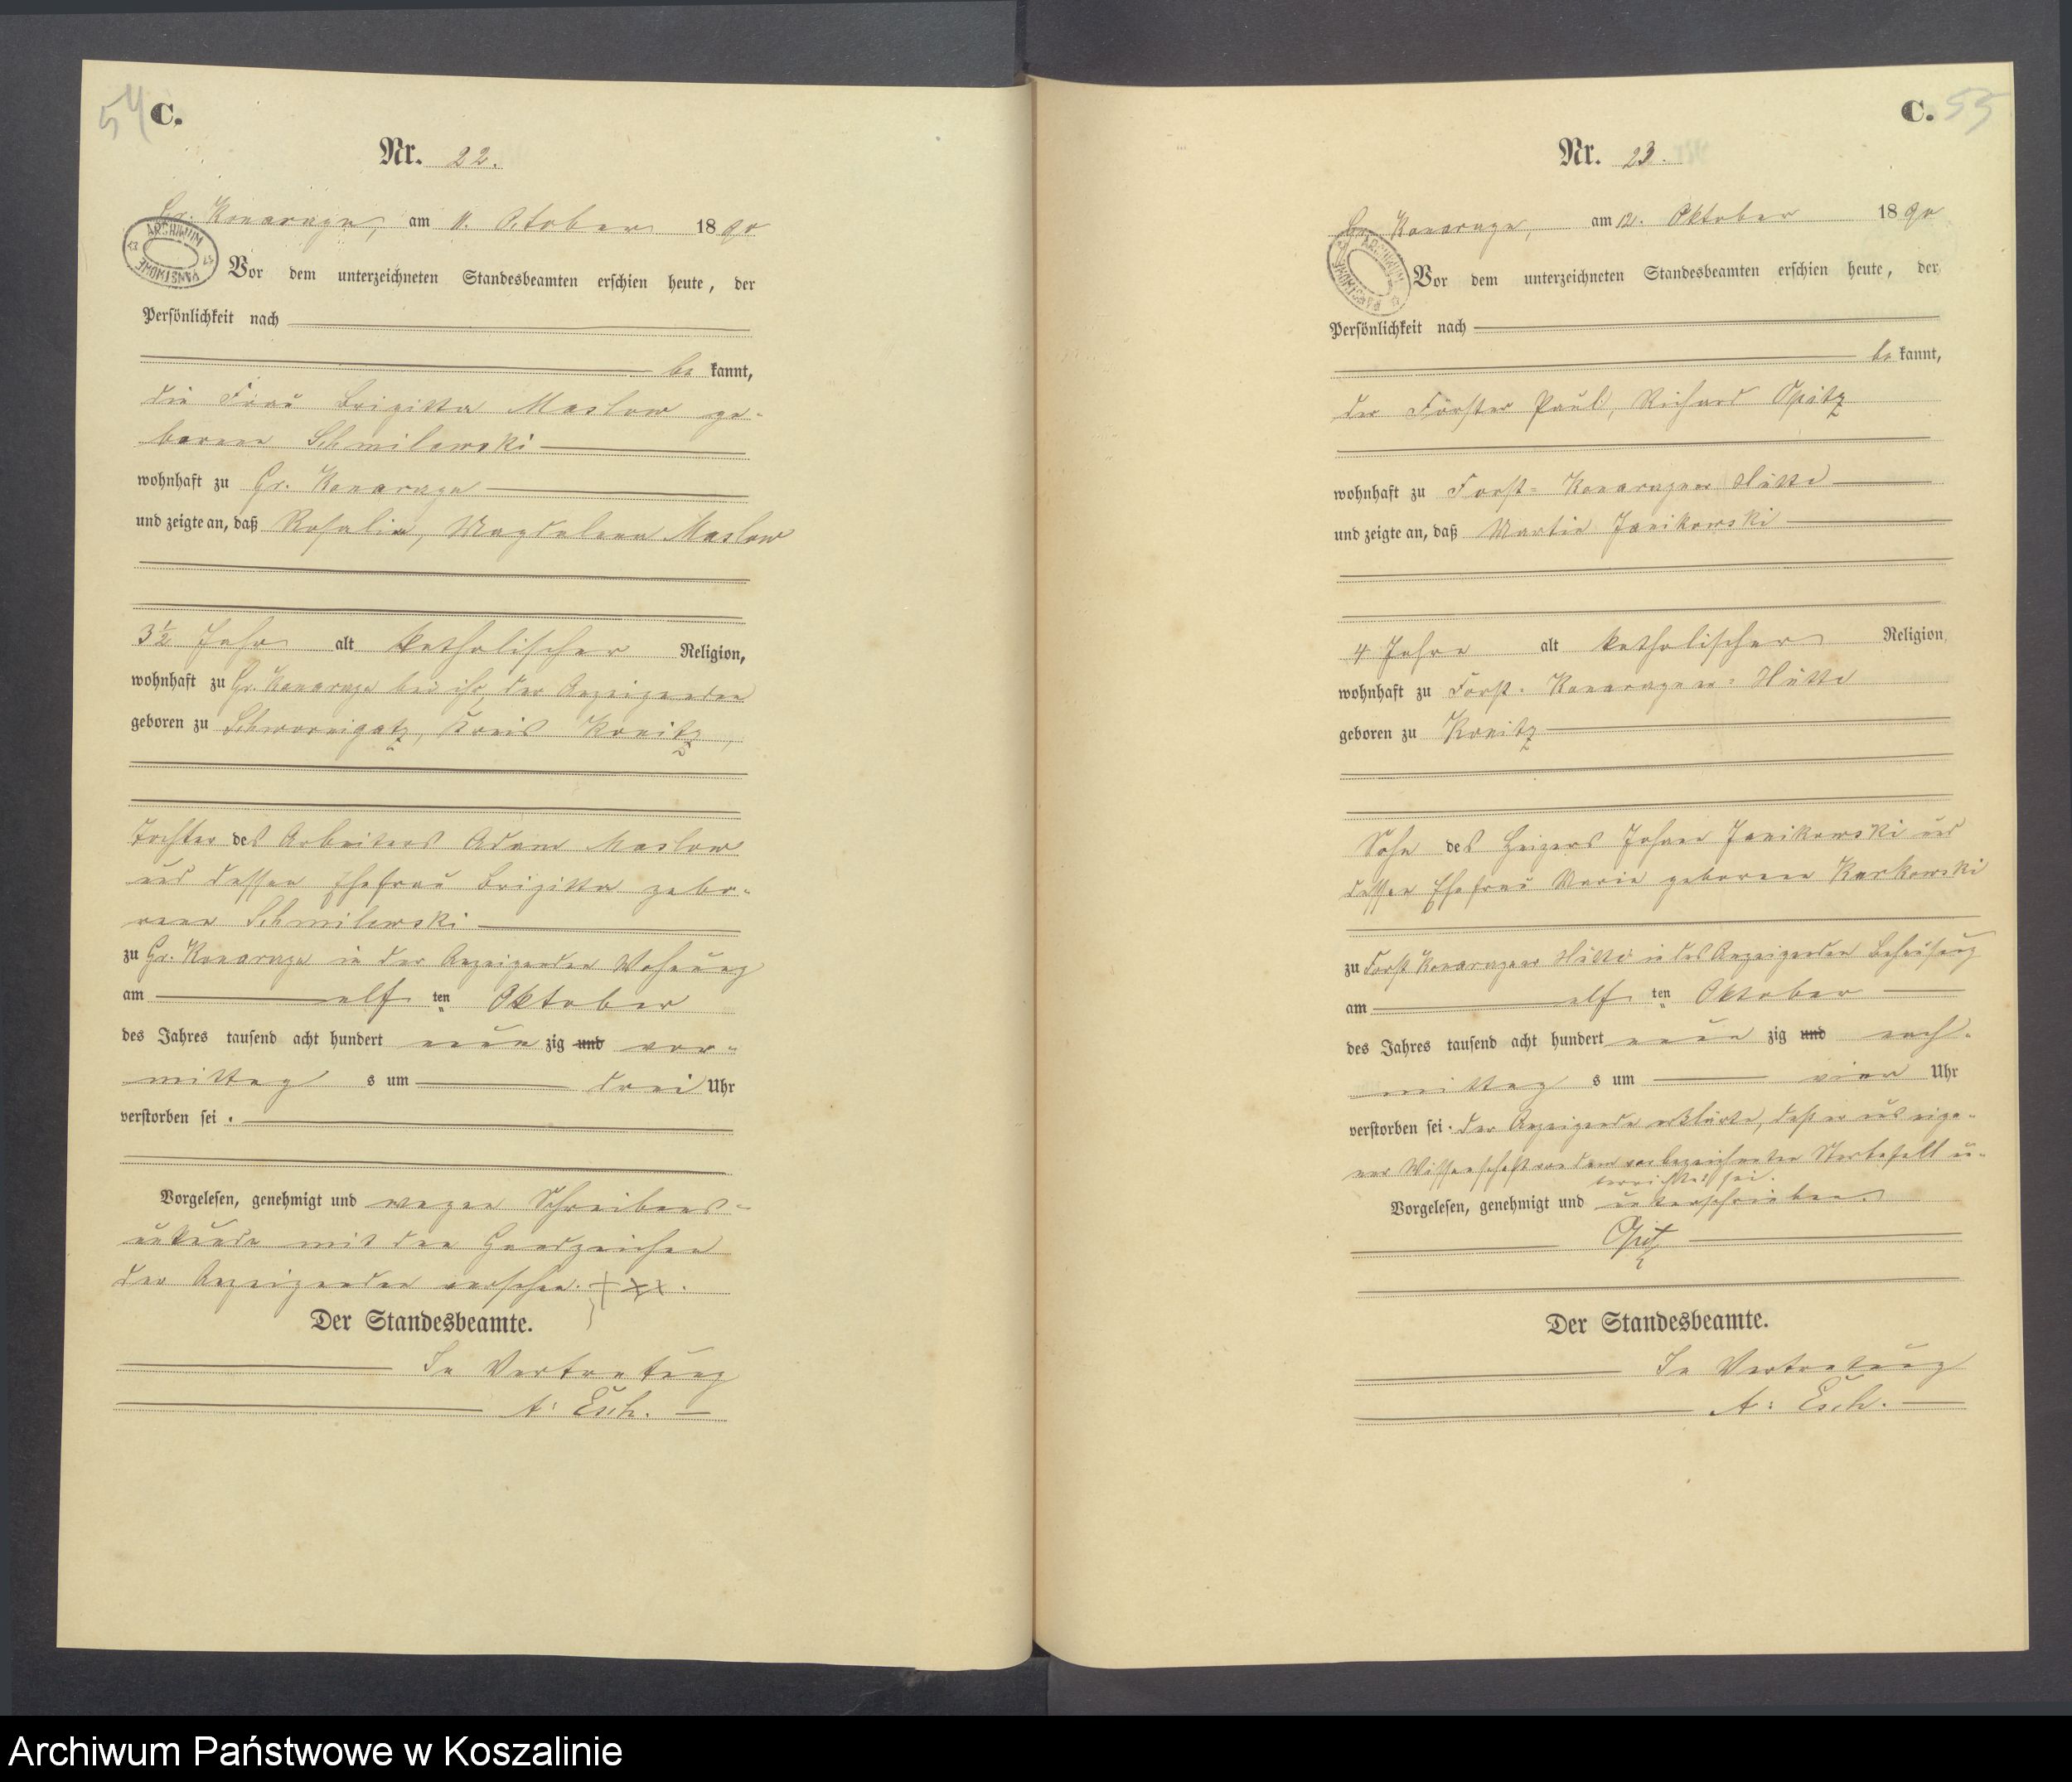 54 C.
Nr. 22.
Gr. Konarczyn, am 11. October 1890
ARCHIWUM PAŃSTWOWE
Vor dem unterzeichneten Standesbeamten erschien heute, der
Persönlichkeit nach
be kannt,
die Frau Brigitta Maslow ge-
borene Schmilewski
wohnhaft zu Gr. Konarczyn
und zeigte an, daß Rosalia, Magdalena Maslow
3½ Jahr alt katholischer Religion,
wohnhaft zu Gr. Konarczyn bei ihr, der Anzeigenden
geboren zu Schwornigatz, Kreis Konitz,
Tochter des Arbeiters Adam Maslow
und dessen Ehefrau Brigitta gebo-
rene Schmilewski
zu Gr. Konarczyn in der Anzeigenden Wohnung
am elf ten Oktober
des Jahres tausend acht hundert neun zig und vor-
mittag s um drei Uhr
verstorben sei.
Vorgelesen, genehmigt und wegen Schreibens-
unkunde mit den Handzeichen
der Anzeigenden versehen. + x x.
Der Standesbeamte.
In Vertretung
A: Esch.
C. 55
Nr. 23.
Gr. Konarczyn, am 12. Oktober 1890
ARCHIWUM PAŃSTWOWE
Vor dem unterzeichneten Standesbeamten erschien heute, der
Persönlichkeit nach
be kannt,
der Förster Paul, Richard Opitz
wohnhaft zu Forst- Konarczyner Hütte
und zeigte an, daß Martin Janikowski
4 Jahre alt katholischer Religion,
wohnhaft zu Forst- Konarczyner- Hütte
geboren zu Konitz
Sohn des Heizers Johann Janikowski und
dessen Ehefrau Maria geborene Karkowski
zu Forst Konarczyner Hütte in des Anzeigenden Behausung
am elf ten Oktober
des Jahres tausend acht hundert neun zig und nach-
mittag s um vier Uhr
verstorben sei. der Anzeigende erklärte, daß er aus eige-
ner Wissenschaft von dem vorbezeichneten Sterbefall un-
terrichtet sei.
Vorgelesen, genehmigt und unterschrieben.
Opitz
Der Standesbeamte.
In Vertretung
A: Esch.
Archiwum Państwowe w Koszalinie